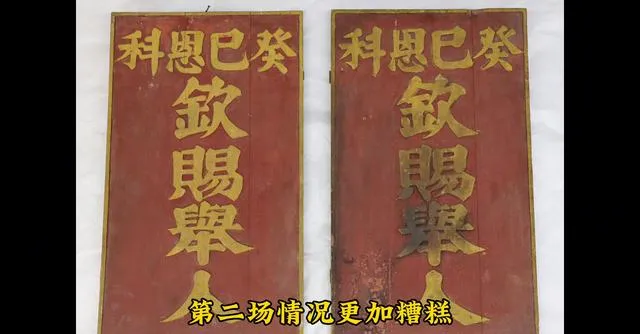 癸巳恩科
欽賜舉人
癸巳恩科
欽賜舉人
第二场情况更加糟糕